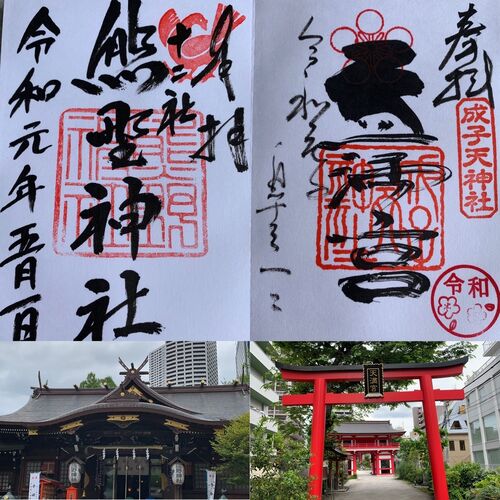 奉拝
十二社
熊野神社
令和元年五月一日
奉拝
成子天神社
天満宮
令和元年
令和
天満宮